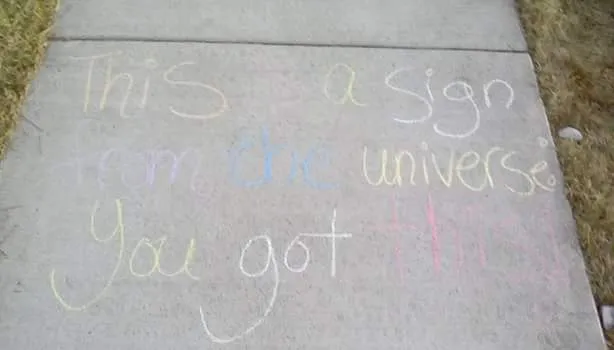 This a sign
from the universe:
You got this!